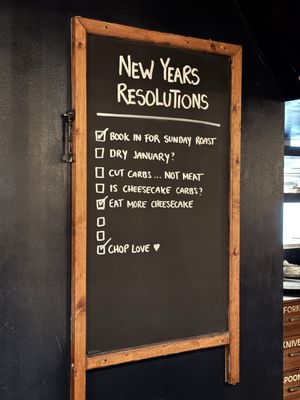 NEW YEARS
RESOLUTIONS
BOOK IN FOR SUNDAY ROAST
DRY JANUARY?
CUT CARBS... NOT MEAT
IS CHEESECAKE CARBS?
EAT MORE CHEESECAKE
CHOP LOVE ♥
FORK
KNIVE
SPOON